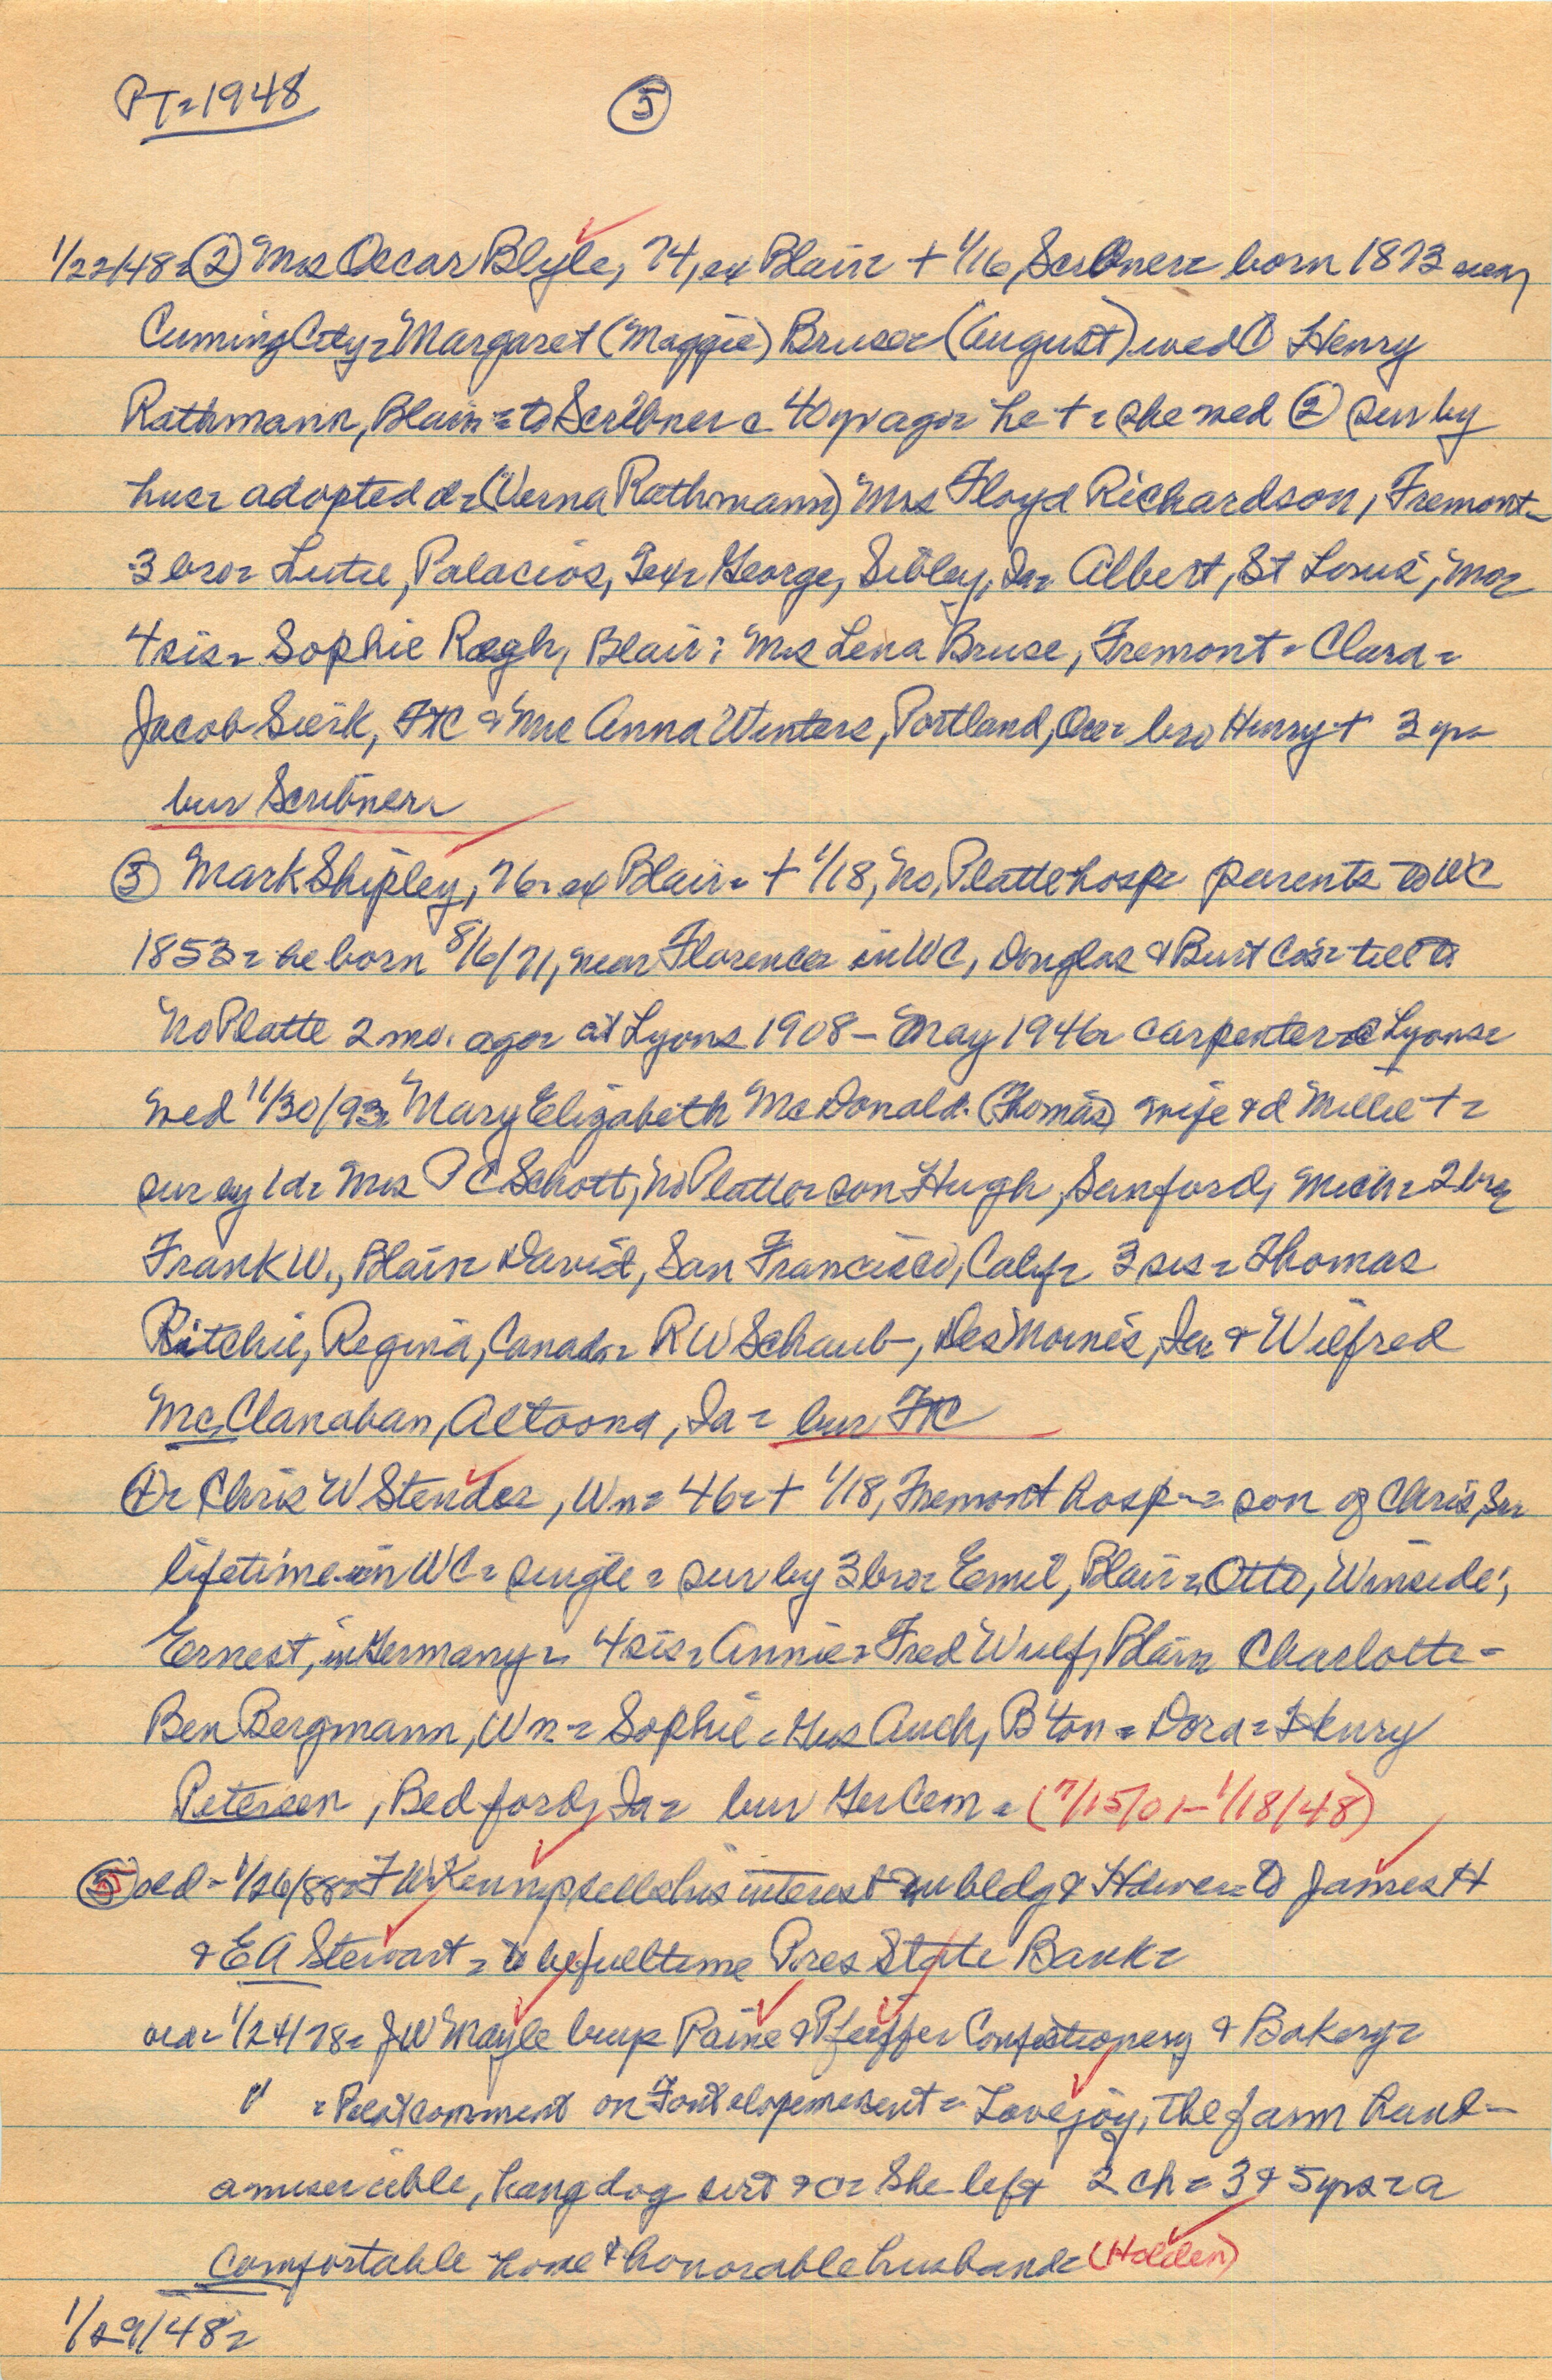 PT=1948
5
1/22/48= 2 Mrs Oscar Blyle, 74, ex Blair + 1/16, Scribner= born 1873 near
Cuming City= Margaret (Maggie) Bruse= (August) wed 1 Henry
Rathmann, Blair= to Scribner c 40 yr ago= he += she wed 2 sur by
hus= adopted d= (Verna Rathmann) Mrs Floyd Richardson, Fremont-
3 bro= Lutie, Palacios, Tex= George, Sibley, Ia= Albert, St Louis, Mo=
4 sis= Sophie Rogh, Blair; Mrs Lena Bruse, Fremont= Clara=
Jacob Sierk, FtC & Mrs Anna Winters, Portland, Ore= bro Henry + 3 yr=
bur Scribner=
3 Mark Shipley, 76= ex Blair= + 1/18, No, Platte hosp= parents to WC
1853= he born 8/6/71, near Florence= in WC, Douglas & Burt Cos= till to
No Platte 2 mo. ago= at Lyons 1908 - May 1946= carpenter @ Lyons=
Wed 11/30/93= Mary Elizabeth McDonald (Thomas) wife & d Millie +=
sur by 1 d= Mrs P C Schott, No Platte= son Hugh, Sanford, Mich= 2 bro=
Frank W., Blair= David, San Francisco, Calif= 3 sis= Thomas
Ritchie, Regina, Canada= R W Schaub, Des Moines, Ia= & Wilfred
McClanahan, Altoona, Ia= bur FtC
4= Chris W Stender, Wn= 46= + 1/18, Fremont hosp= son of Chris, Sr=
lifetime in WC= single= sur by 3 bro= Emil, Blair= Otto, Winside;
Ernest, in Germany= 4 sis= Annie= Fred Wulf, Blair= Charlotte=
Ben Bergmann, Wn= Sophie= Gus Auch, B'ton= Dora= Henry
Petersen, Bedford, Ia= bur Ger Cem= (7/15/01-1/18/48)
5 old= 1/26/88= F W Kenny sells his interest in bldg & Hdwe= to James H
& E A Stewart= to be fulltime Pres State Bank=
old= 1/24/78= J W Mayle buys Paine & Pfeiffer Confectionery & Bakery=
" = Pilot comment on Font elopement= Lovejoy, the farm hand-
a miserable, hang dog sort = She left 2 ch= 3 & 5 yrs= a
comfortable home & honorable husband= (Holden)
1/29/48=